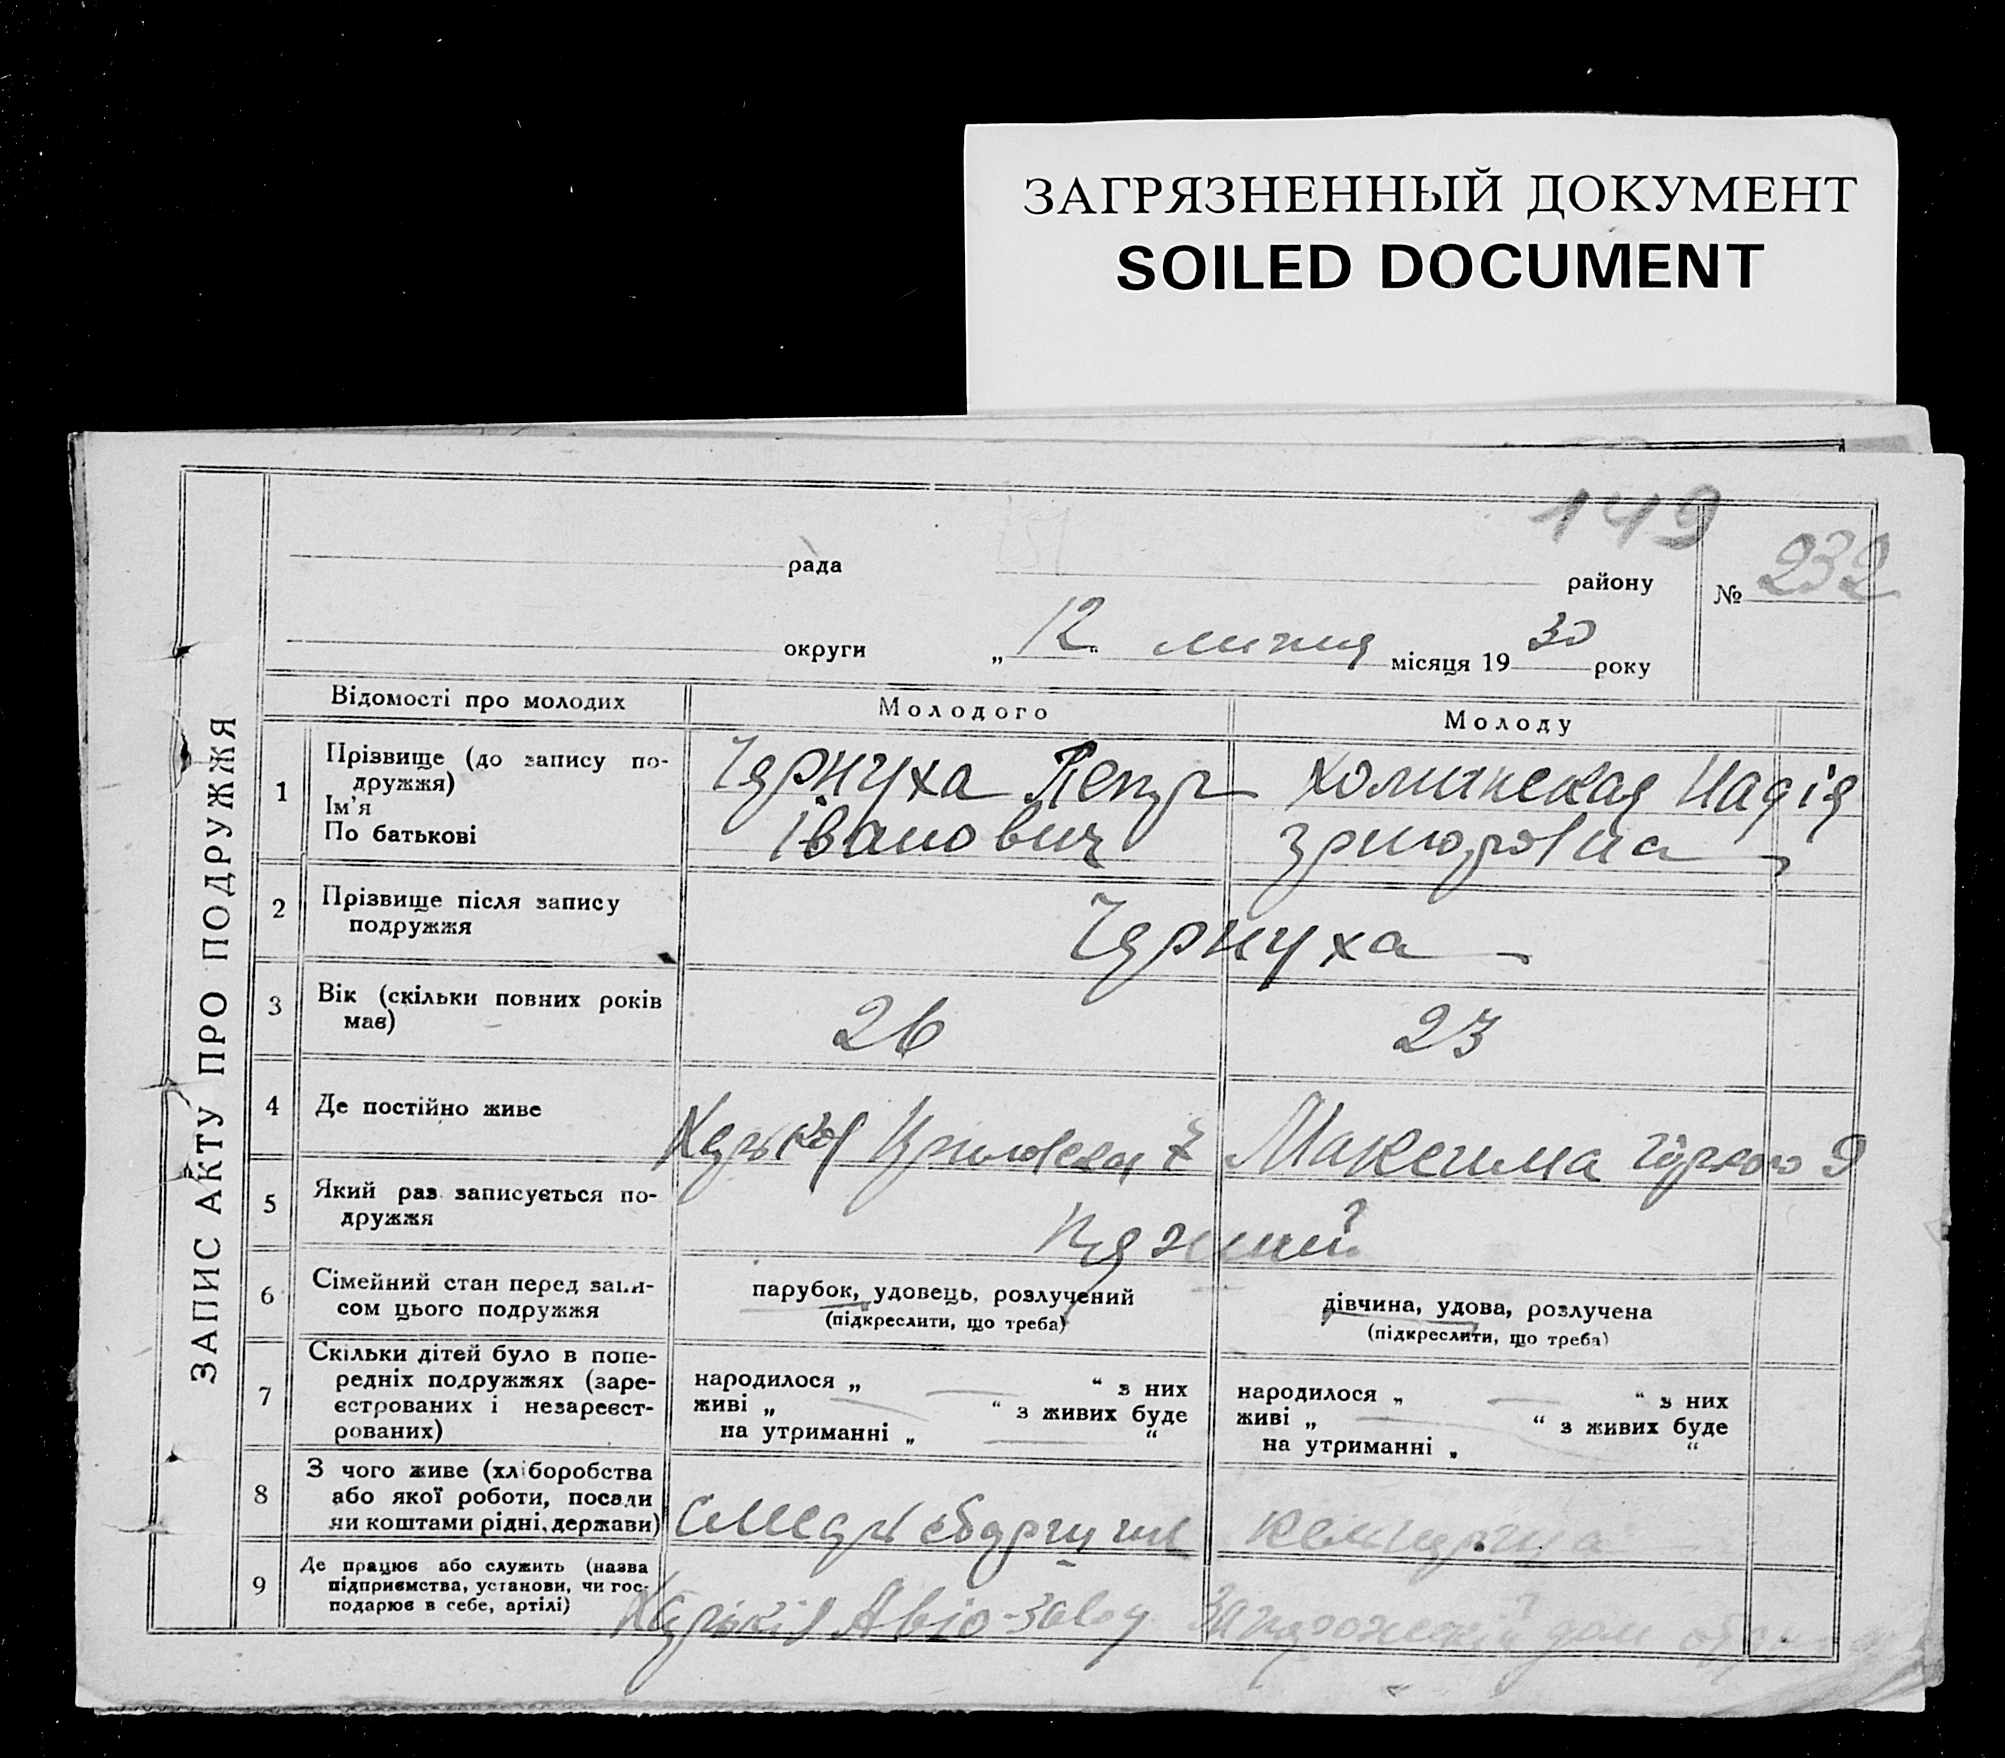 ЗАГРЯЗНЕННЫЙ ДОКУМЕНТ
SOILED DOCUMENT
149
рада
району
№ 232
округи
„ 12 " липня місяця 1930 року
ЗАПИС АКТУ ПРО ПОДРУЖЖЯ
Відомості про молодих
Молодого
Молоду
1
Прізвище (до запису по-
дружжя)
Ім'я
По батькові
Чернуха Петр
Іванович
Холинская Надія
Григоровна
2
Прізвище після запису
подружжя
Чернуха
3
Вік (скільки повних років
має)
26
23
4
Де постійно живе
Харьков 7
Максима Горкого 9
5
Який раз записується по-
дружжя
6
Сімейний стан перед запи-
сом цього подружжя
парубок, удовець, розлучений
(підкреслити, що треба)
дівчина, удова, розлучена
(підкреслити, що треба)
7
Скільки дітей було в попе-
редніх подружжях (заре-
єстрованих і незареєст-
рованих)
народилося „ — “ з них
живі „ — “ з живих буде
на утриманні „ — “
народилося „ — “ з них
живі „ — “ з живих буде
на утриманні „ “
8
З чого живе (хліборобства
або якої роботи, посади
чи коштами рідні, держави)
9
Де працює або служить (назва
підприємства, установи, чи гос-
подарює в себе, артілі)
Харьків Авіо-завод
дом